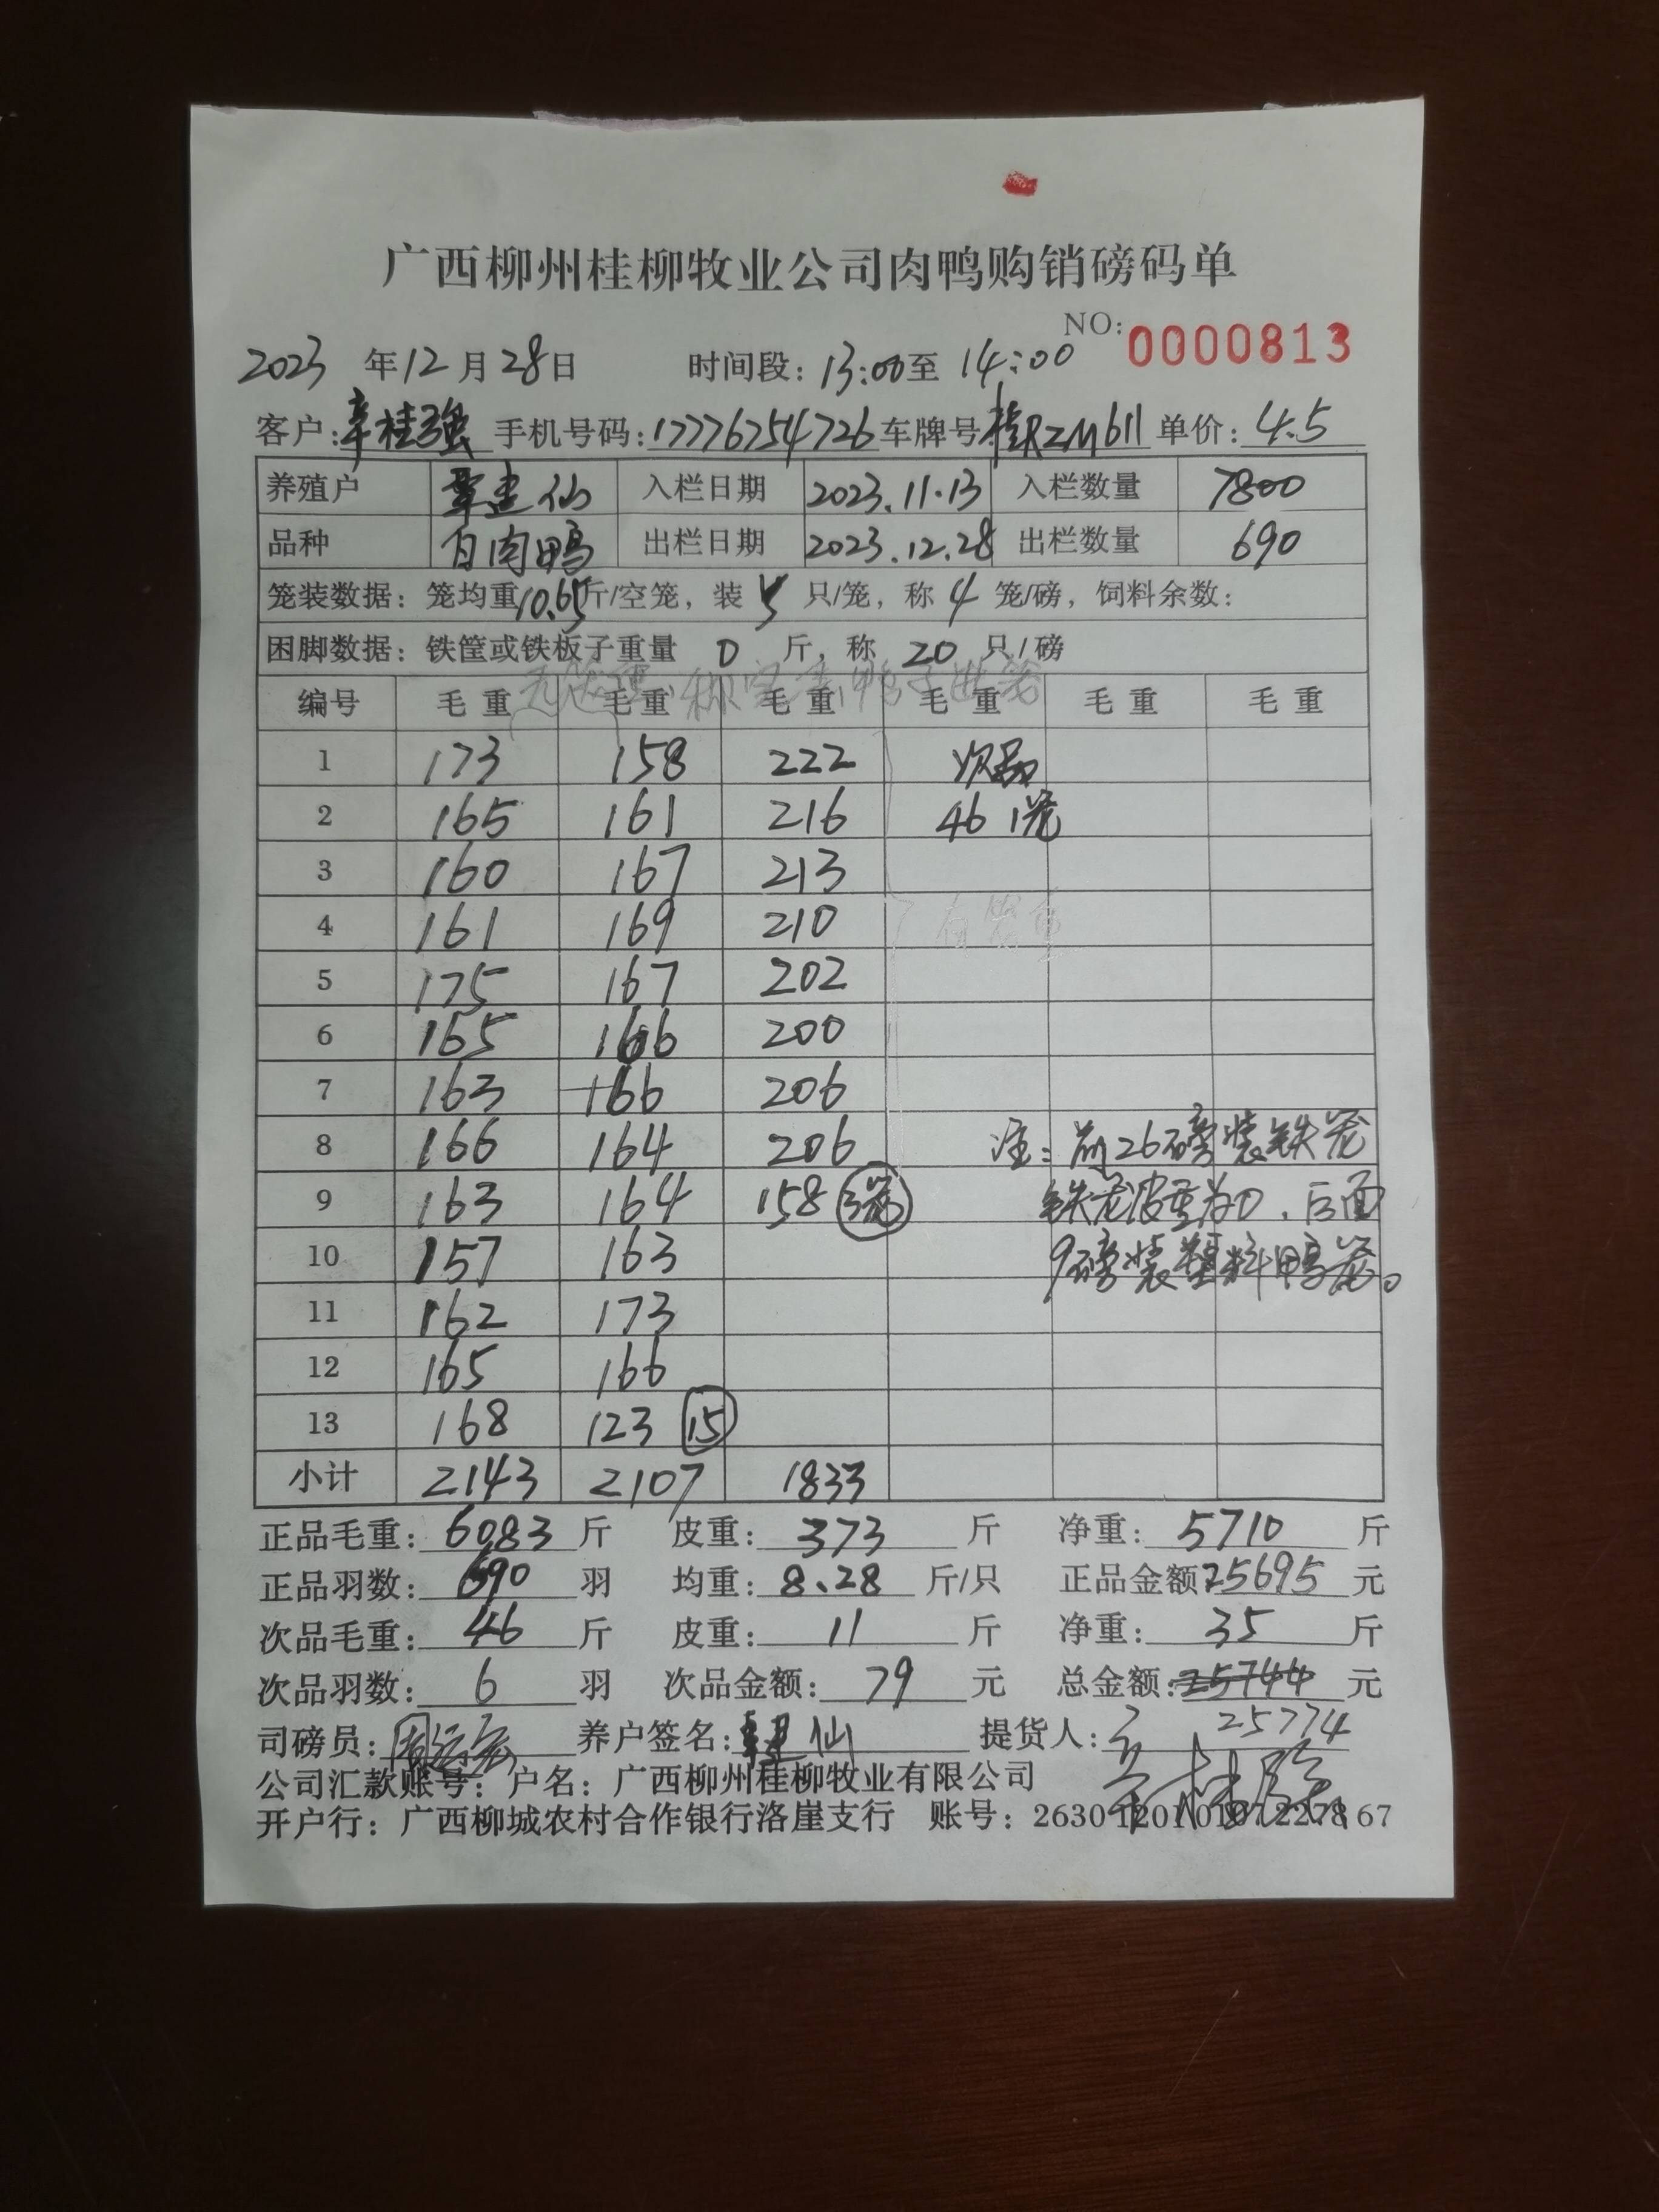 广西柳州桂柳牧业公司肉鸭购销磅码单
NO: 0000813
2023 年 12 月 28 日 时间段: 13:00 至 14:00
客户: 辛桂强 手机号码: 17776754726 车牌号: 桂RZM611 单价: 4.5
养殖户 覃建仙 入栏日期 2023.11.13 入栏数量 7800
品种 白肉鸭 出栏日期 2023.12.28 出栏数量 690
笼装数据: 笼均重 10.65 斤/空笼, 装 5 只/笼, 称 4 笼/磅, 饲料余数:
困脚数据: 铁筐或铁板子重量 0 斤, 称 20 只/磅
编号 毛重 毛重 毛重 毛重 毛重 毛重
1 173 158 222 次品
2 165 161 216 46 1笼
3 160 167 213
4 161 169 210
5 175 167 202
6 165 166 200
7 163 166 206
8 166 164 206 注: 前26磅装铁笼
9 163 164 158 3笼 铁笼皮重为0, 后面
10 157 163 9磅装塑料鸭笼。
11 162 173
12 165 166
13 168 123 15
小计 2143 2107 1833
正品毛重: 6083 斤 皮重: 373 斤 净重: 5710 斤
正品羽数: 690 羽 均重: 8.28 斤/只 正品金额: 25695 元
次品毛重: 46 斤 皮重: 11 斤 净重: 35 斤
次品羽数: 6 羽 次品金额: 79 元 总金额: 25744 元
25774
司磅员: 养户签名: 覃建仙 提货人:
公司汇款账号: 户名: 广西柳州桂柳牧业有限公司
开户行: 广西柳城农村合作银行洛崖支行 账号: